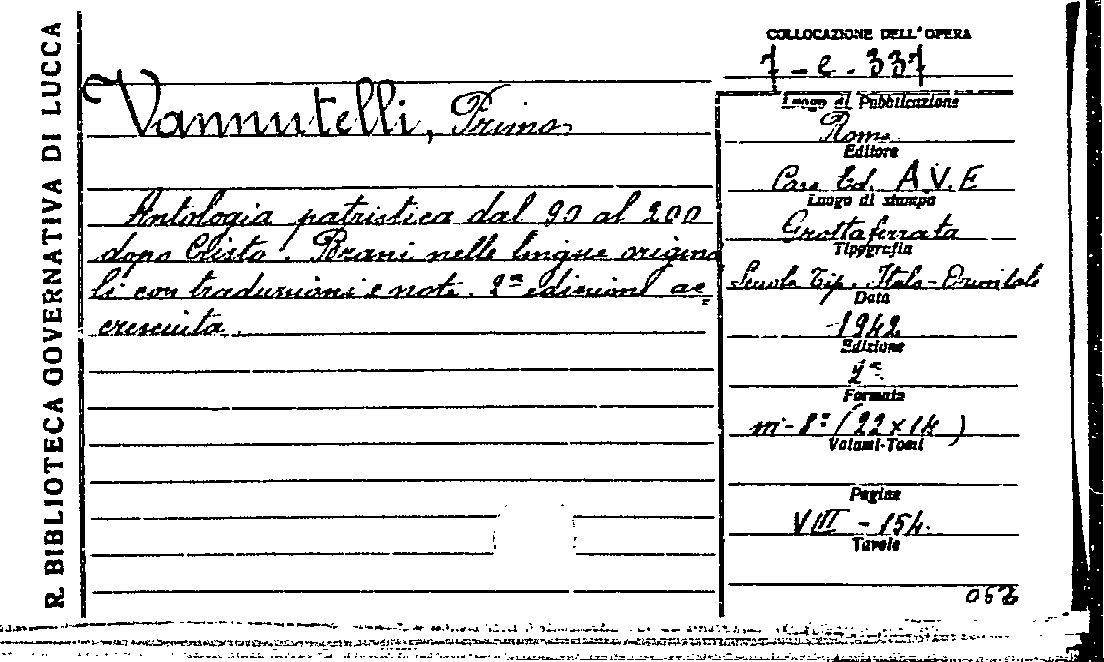 R. BIBLIOTECA GOVERNATIVA DI LUCCA
COLLOCAZIONE DELL'OPERA
7-e-337
Vannutelli, Primo
Antologia patristica dal 90 al 200
dopo Cristo. Brani nelle lingue origina
li con traduzioni e note. 2ª edizione ac=
cresciuta.
Luogo di Pubblicazione
Roma
Editore
Casa Ed. A.V.E
Luogo di stampa
Grottaferrata
Tipografia
Scuola Tip. Italo-Orientale
Data
1942
Edizione
2ª
Formato
in-8° (22x14)
Volumi-Tomi
Pagine
VIII - 154.
Tavole